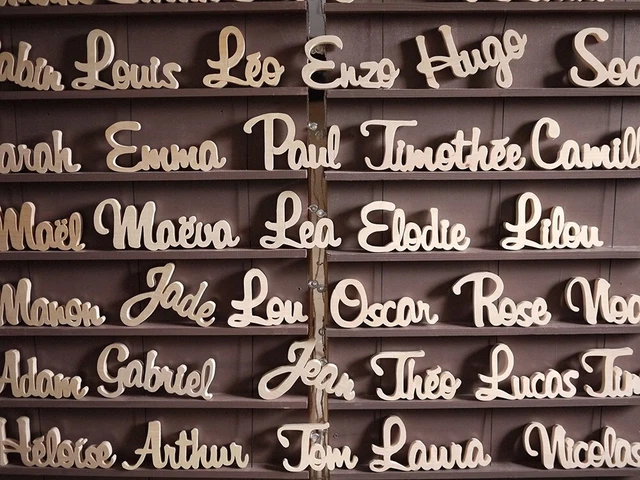 abin Louis Léo Enzo Hugo Soa
arah Emma Paul Timothée Camill
Maël Maëva Léa Elodie Lilou
Manon Jade Lou Oscar Rose Noa
Adam Gabriel Jean Théo Lucas Tim
Héloïse Arthur Tom Laura Nicolas